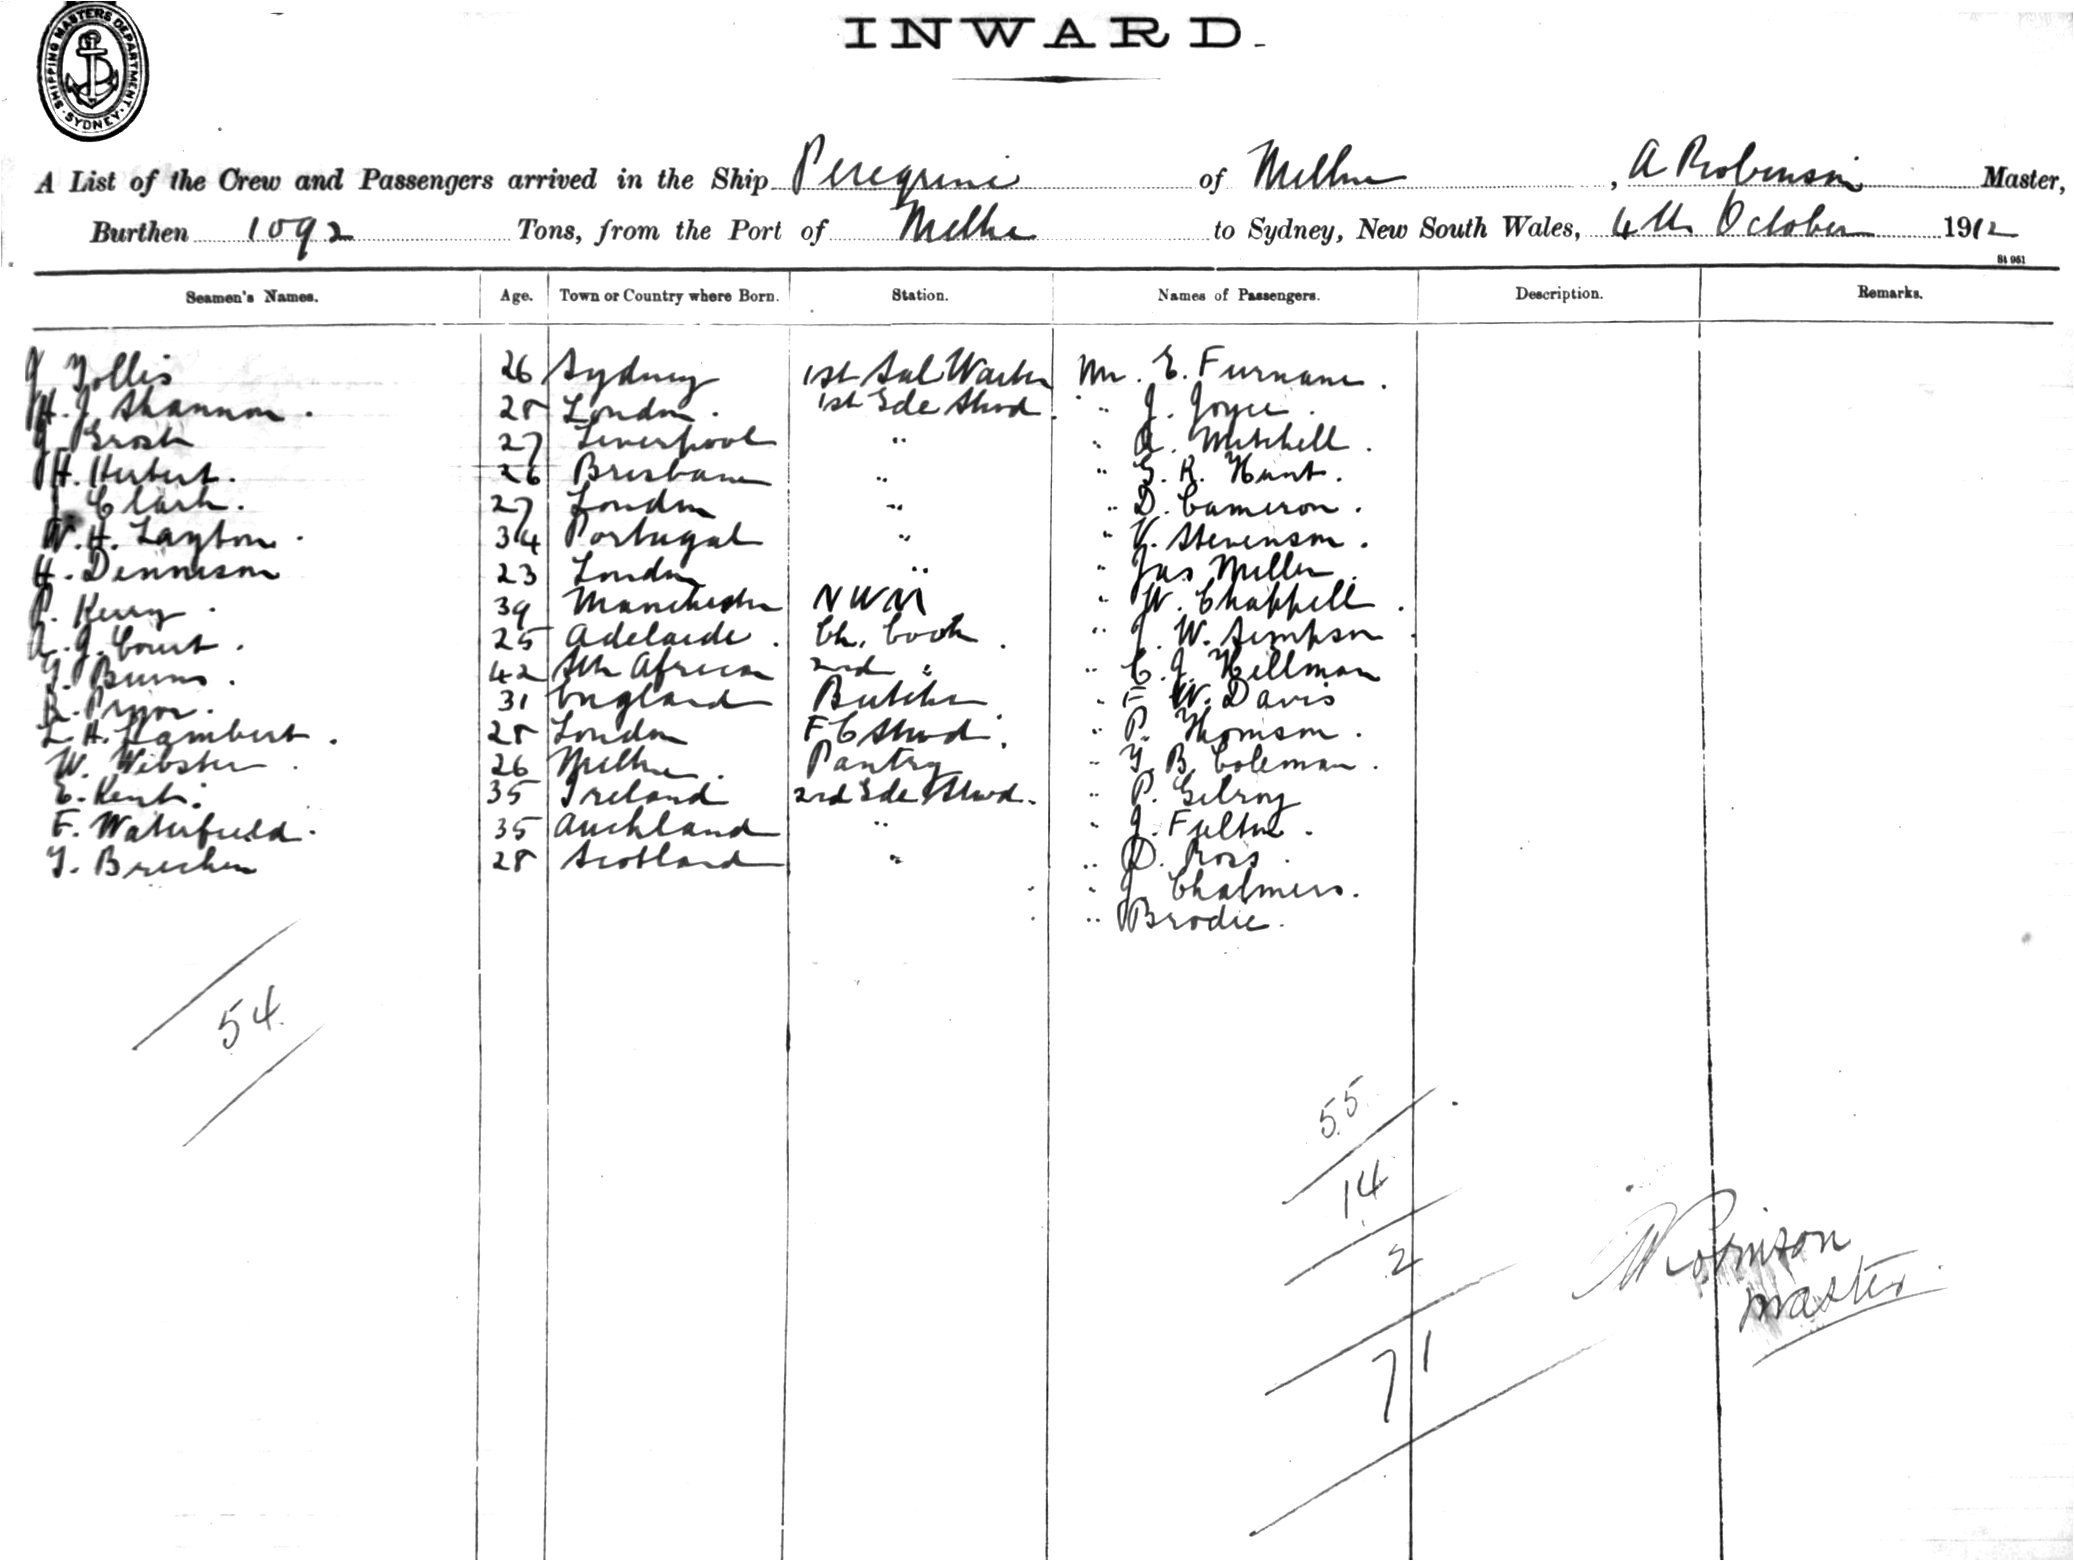 SHIPPING MASTERS DEPARTMENT SYDNEY
INWARD.
A List of the Crew and Passengers arrived in the Ship Peregrine of Melbne, A Robinson Master,
Burthen 1092 Tons, from the Port of Melbne to Sydney, New South Wales, 4th October 1912
St 961
Seamen's Names. Age. Town or Country where Born. Station. Names of Passengers. Description. Remarks.
26 Sydney 1st Sal Waiter Mr. E. Furnane.
H. J. Shannon. 28 London. 1st Sde Stwd. " J. Joyce.
27 Liverpool " " A. Mitchell.
H. Herbert. 26 Brisbane " " G. R. Hunt.
J Clark. 27 London " " D. Cameron.
W. H. Layton. 34 Portugal " " V. Stevenson.
H. Dennison 23 London " " Jas Miller.
P. Kerry. 39 Manchester NWM " W. Chappell.
A. J. Court. 25 Adelaide. Ch. Cook. " J. W. Simpson
Burns. 42 Sth African 2nd " " C. J. Hellman
R. Pryor. 31 England Butcher. " F W. Davis
L. H. Lambert. 28 London F C Stwd. " P. Thomson.
W. Webster. 26 Melbne. Pantry " B. Coleman.
E. Kent. 35 Ireland 2nd Sde Stwd. " P. Gilroy
F. Waterfield. 35 Auckland " " J. Fulton.
28 Scotland " " D. Ross.
" J. Chalmers.
" Brodie.
54
55
14
2
71
A Robinson
master